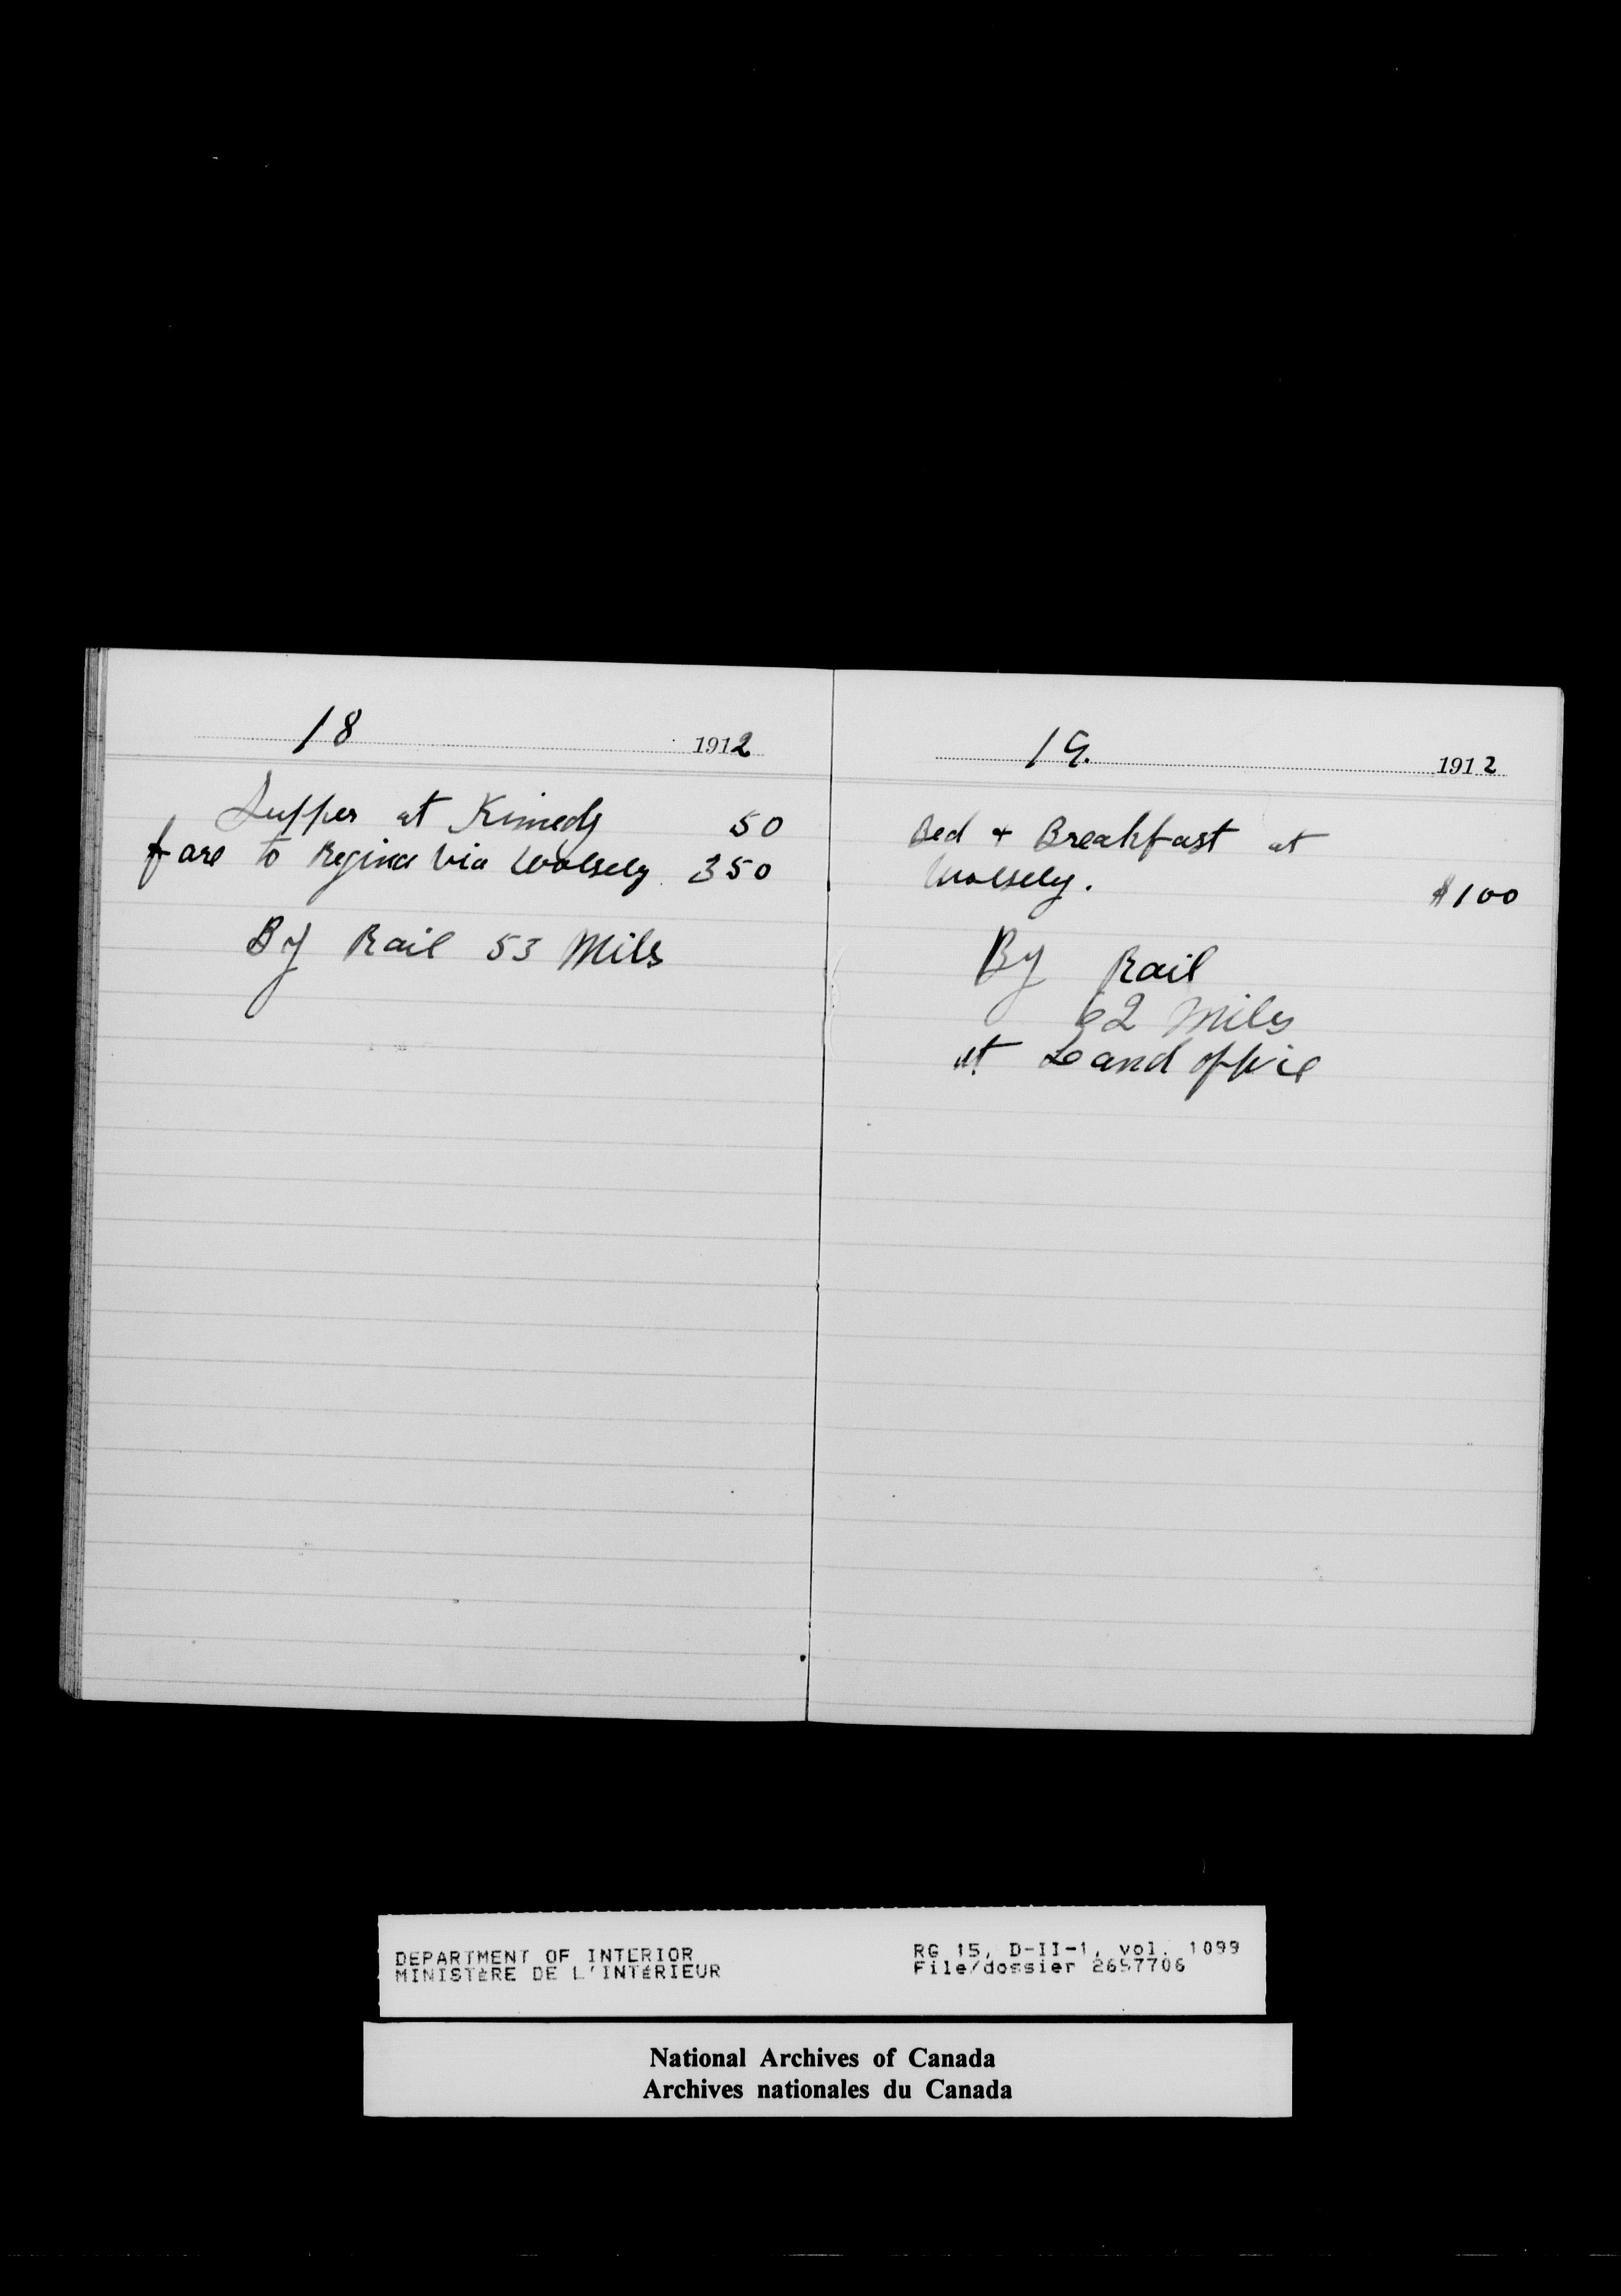 18 1912
Supper at Kimedy 50
fare to Regina via Wolsely 350
By Rail 53 Mils
19. 1912
Bed + Breakfast at
Wolsely. $100
By Rail
62 Miles
at Land offic
DEPARTMENT OF INTERIOR
MINISTÈRE DE L'INTÉRIEUR
RG 15, D-II-1, vol. 1099
File/dossier 2657706
National Archives of Canada
Archives nationales du Canada